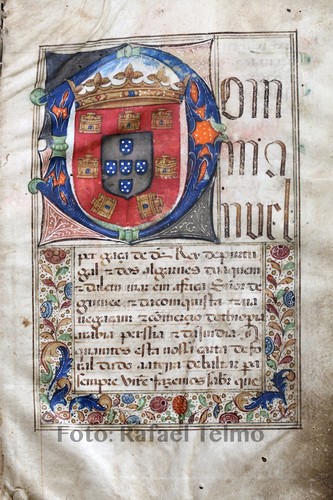 Dom
ma
nuel
per graça de ds Rey de purtu
gal z dos algarues daquem
z dalem mar em africa Sñor de
guinee z da comquista z na
uegacam z comercio dethiopia
arabia perssia z da Jndia A
quamtos esta nossa carta de fo
ral dado aa
virẽ fazemos saber que
Foto: Rafael Telmo